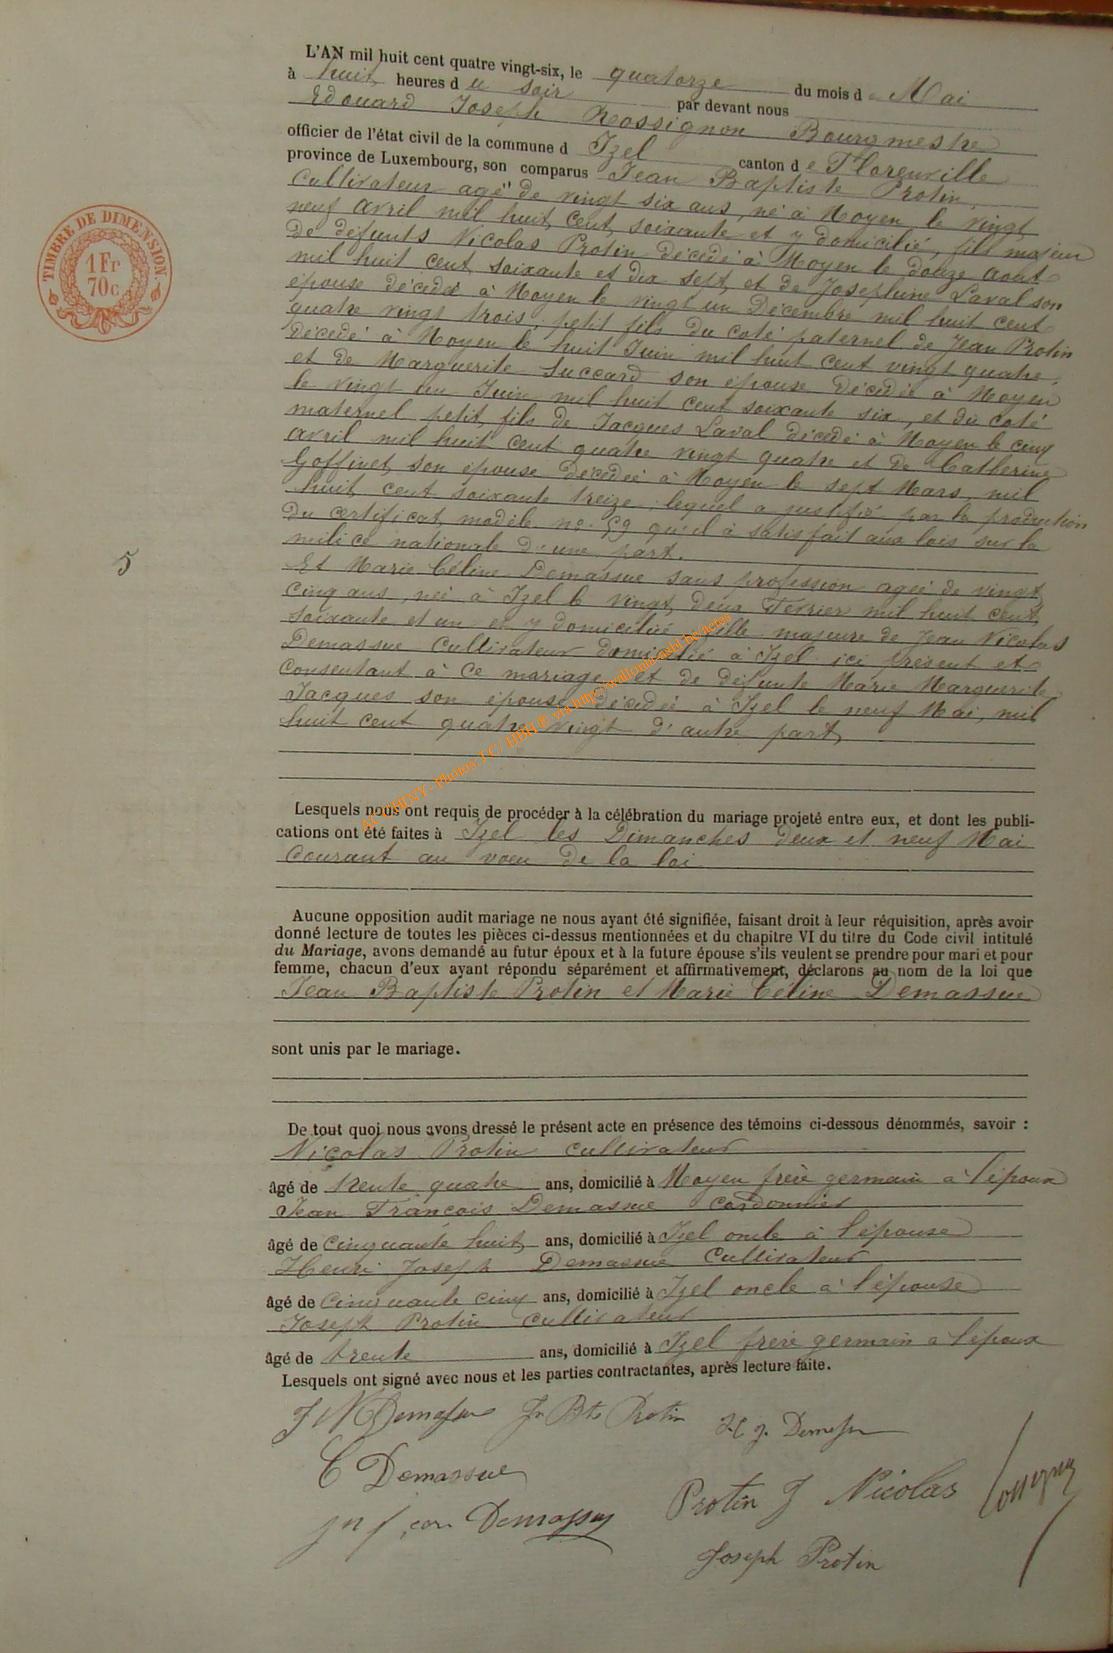 L'AN mil huit cent quatre vingt-six, le quatorze du mois de Mai
à huit heures du soir par devant nous
Edouard Joseph Rossignon Bourgmestre
officier de l'état civil de la commune d Izel canton de Florenville
province de Luxembourg, son comparus Jean Baptiste Protin,
Cultivateur agé de vingt six ans, né à Moyen le vingt
neuf Avril mil huit cent soixante et y domicilié, fils majeur
de défunts Nicolas Protin décédé à Moyen le douze Aout
mil huit cent soixante et dix sept, et de Josephine Laval son
épouse décédée à Moyen le vingt un Décembre mil huit cent
quatre vingt trois, petit fils du coté paternel de Jean Protin
décédé à Moyen le huit Juin mil huit cent vingt quatre,
et de Marguerite Succard son épouse décédée à Moyen
le vingt un Juin mil huit cent soixante six, et du coté
maternel petit fils de Jacques Laval décédé à Moyen le cinq
Avril mil huit cent quatre vingt quatre et de Catherine
Goffinet son épouse décédée à Moyen le sept Mars, mil
huit cent soixante treize, lequel a justifié par la production
du certificat modèle no. 59 qu'il à satisfait aux lois sur la
milice nationale d'une part.
Et Marie Céline Demassue sans profession agée de vingt
cinq ans, née à Izel le vingt deux Fevrier mil huit cent
soixante et un et y domiciliée fille majeure de Jean Nicolas
Demassue Cultivateur domicilié à Izel ici présent et
consentant à ce mariage et de défunte Marie Marguerite
Jacques son épouse décédée à Izel le neuf Mai, mil
huit cent quatre vingt d'autre part,
TIMBRE DE DIMENSION
1 Fr
70c
5
AC CHINY - Photos J.C/ HBH © via http://wallonia-asbl.be/actes
Lesquels nous ont requis de procéder à la célébration du mariage projeté entre eux, et dont les publi-
cations ont été faites à Izel les Dimanches deux et neuf Mai
Courant au voeu de la loi
Aucune opposition audit mariage ne nous ayant été signifiée, faisant droit à leur réquisition, après avoir
donné lecture de toutes les pièces ci-dessus mentionnées et du chapitre VI du titre du Code civil intitulé
du Mariage, avons demandé au futur époux et à la future épouse s'ils veulent se prendre pour mari et pour
femme, chacun d'eux ayant répondu séparément et affirmativement, déclarons au nom de la loi que
Jean Baptiste Protin et Marie Céline Demassue
sont unis par le mariage.
De tout quoi nous avons dressé le présent acte en présence des témoins ci-dessous dénommés, savoir :
Nicolas Protin cultivateur
âgé de trente quatre ans, domicilié à Moyen frère germain à l'époux
Jean François Demassue cordonnier
âgé de cinquante huit ans, domicilié à Izel oncle à l'épouse
Henri Joseph Demassue Cultivateur
âgé de cinquante cinq ans, domicilié à Izel oncle à l'épouse
Joseph Protin cultivateur
âgé de trente ans, domicilié à Izel frère germain a l'époux
Lesquels ont signé avec nous et les parties contractantes, après lecture faite.
J N Demassue Jn Bte Protin H J. Demassue
C Demassue
Protin J Nicolas Rossignon
Demassue
Joseph Protin